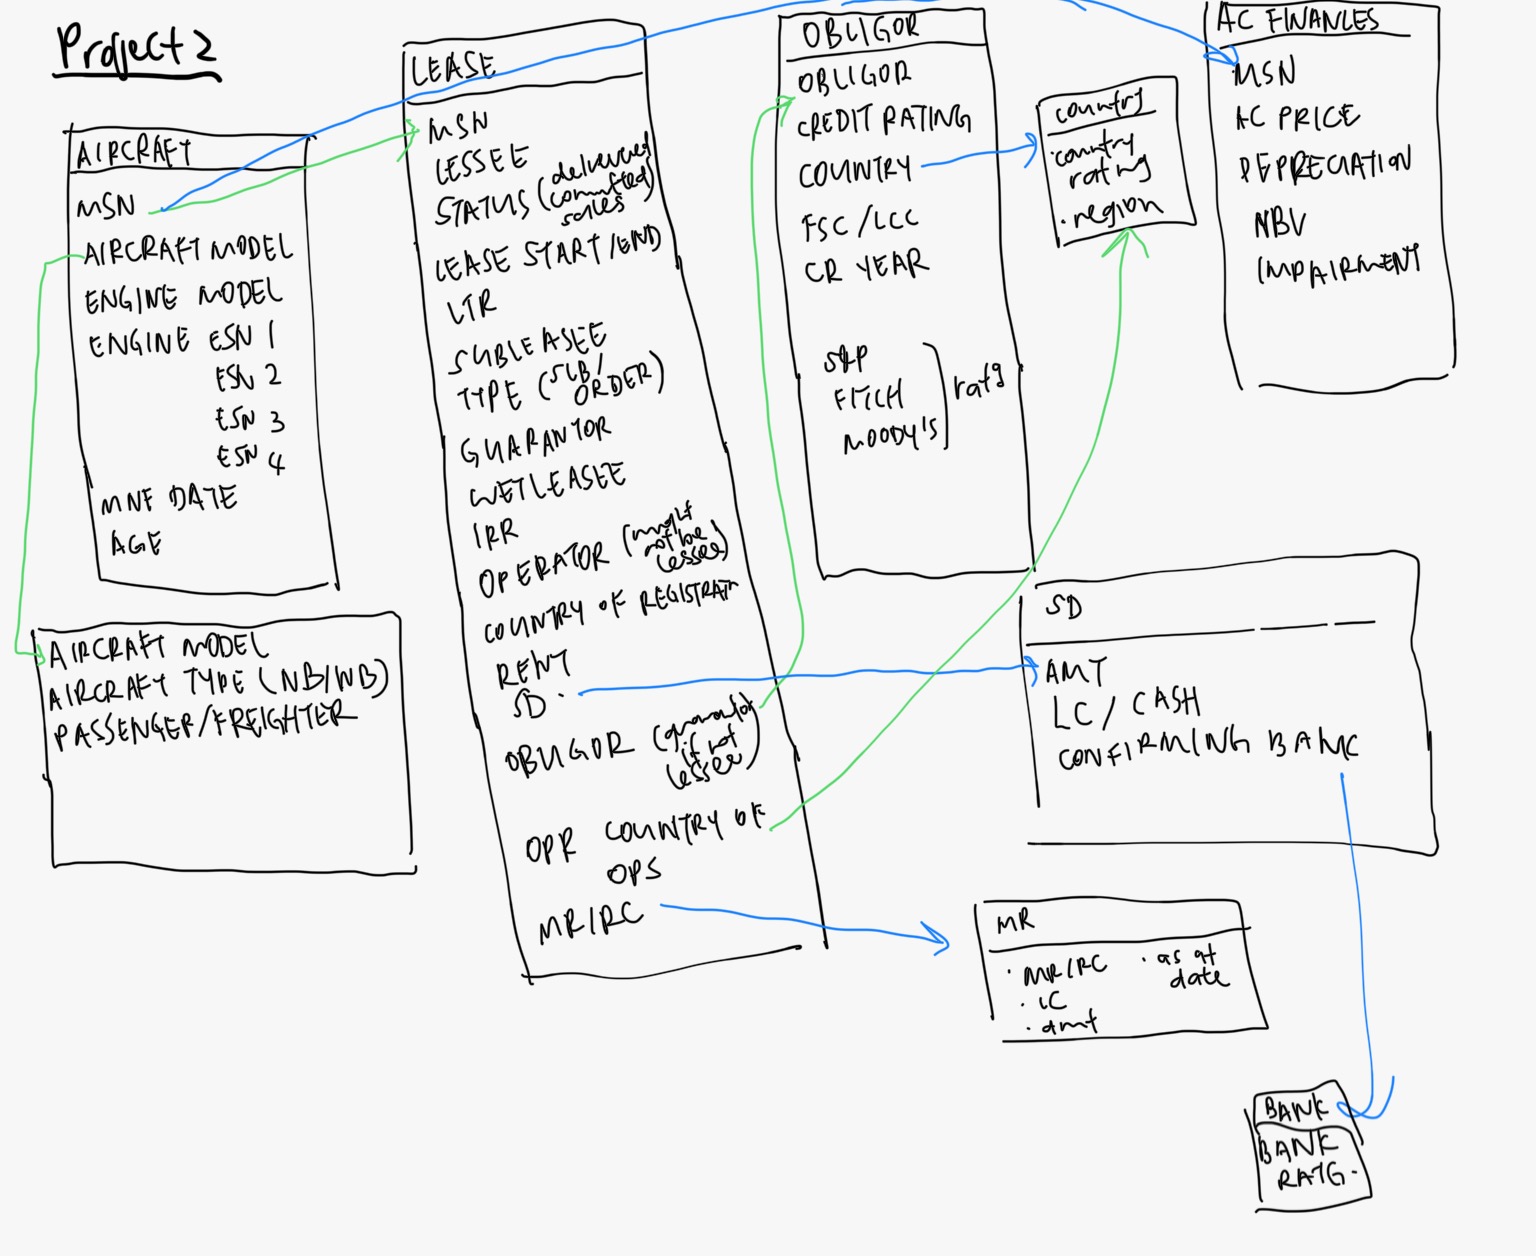 Project 2
AIRCRAFT
MSN
AIRCRAFT MODEL
ENGINE MODEL
ENGINE ESN 1
ESN 2
ESN 3
ESN 4
MNF DATE
AGE
AIRCRAFT MODEL
AIRCRAFT TYPE (NB/WB)
PASSENGER/FREIGHTER
LEASE
MSN
LESSEE
STATUS (delivered
committed)
sales
LEASE START/END
LTR
SUBLEASEE
TYPE (SLB/
ORDER)
GUARANTOR
WETLEASEE
IRR
OPERATOR (might
not be
lessee)
COUNTRY OF REGISTRATN
RENT
SD
OBLIGOR (guarantor
if not
lessee)
OPR COUNTRY OF
OPS
MR/RC
OBLIGOR
OBLIGOR
CREDIT RATING
COUNTRY
FSC/LCC
CR YEAR
S&P
FITCH
MOODY'S
ratg
country
·country
rating
·region
AC FINANCES
MSN
AC PRICE
DEPRECIATION
NBV
IMPAIRMENT
SD
AMT
LC / CASH
CONFIRMING BANK
MR
· MR/RC
· LC
· amt
· as at
date
BANK
BANK
RATG.